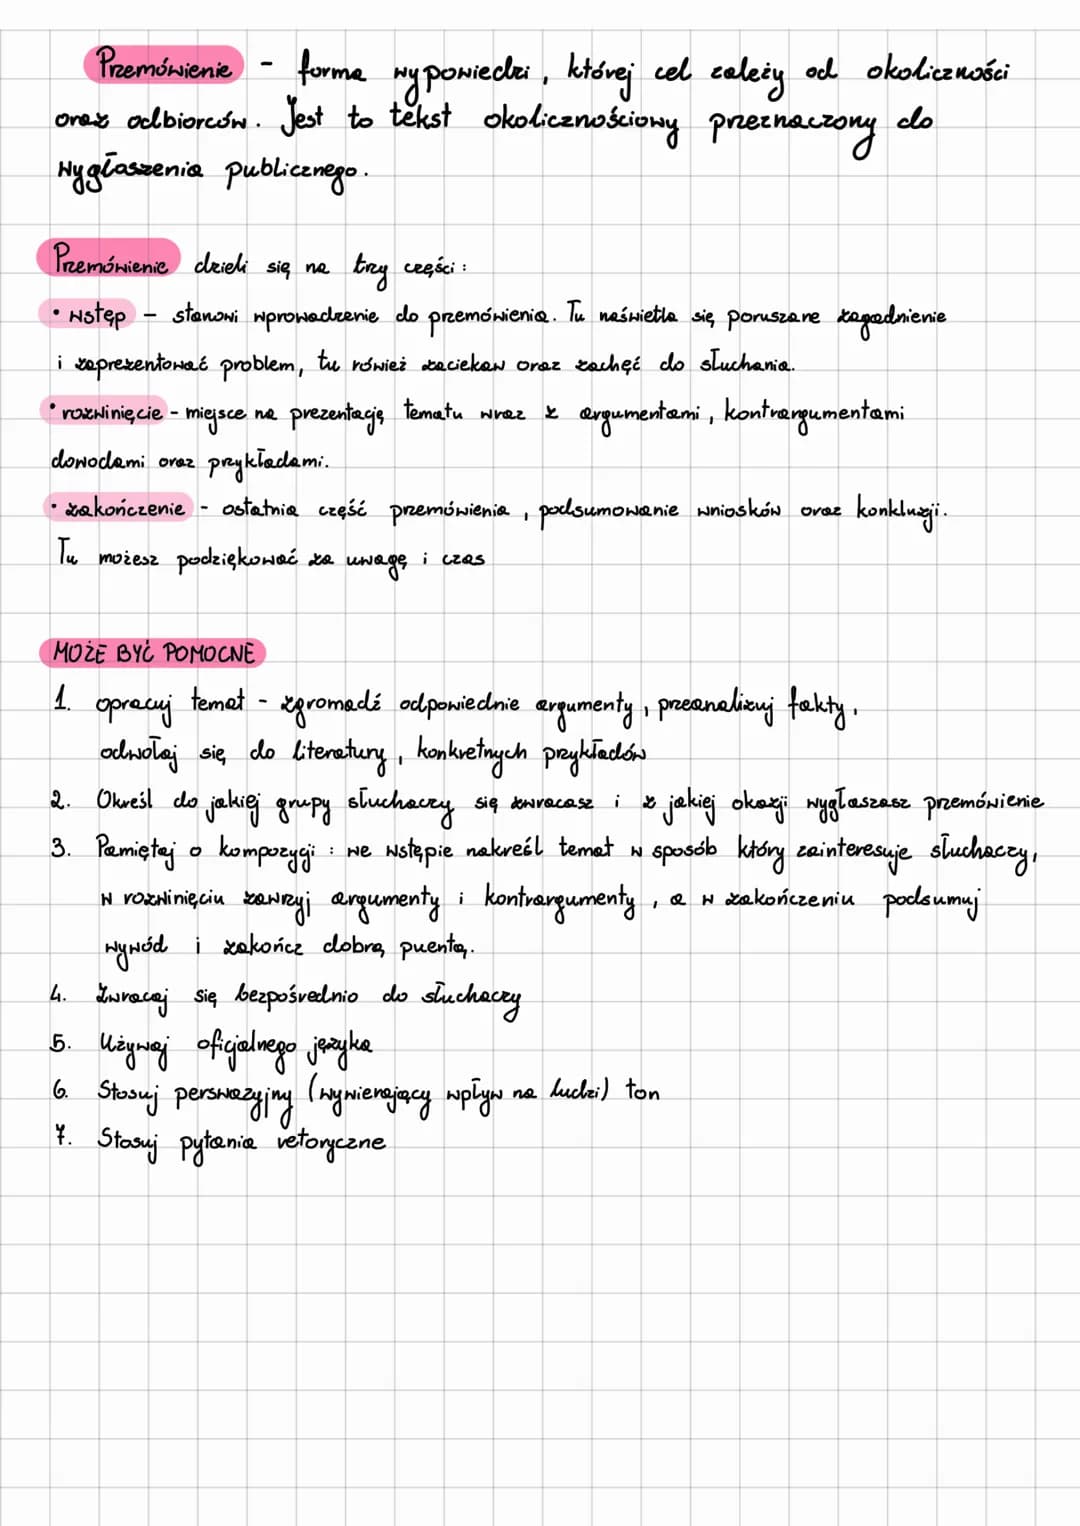 Przemówienie - forma wypowiedzi, której cel zależy od okoliczności
oraz odbiorców. Jest to tekst okolicznościowy przeznaczony do
wygłaszenia publicznego.
Przemówienie dzieli się na trzy części:
• wstęp – stanowi wprowadzenie do przemówienia. Tu naświetla się poruszane zagadnienie
i zaprezentować problem, tu rówież zaciekaw oraz zachęć do słuchania.
• rozwinięcie - miejsce na prezentację tematu wraz z argumentami, kontrargumentami
dowodami oraz przykładami.
• zakończenie - ostatnia część przemówienia, podsumowanie wniosków oraz konkluzji.
Tu możesz podziękować za uwagę i czas
MOŻE BYĆ POMOCNE
1. opracuj temat - zgromadź odpowiednie argumenty, przeanalizuj fakty,
odwołaj się do literatury, konkretnych przykładów
2. Określ do jakiej grupy słuchaczy się zwracasz i z jakiej okazji wygłaszasz przemówienie
3. Pamiętaj o kompozycji: we wstępie nakreśl temat w sposób który zainteresuje słuchaczy,
w rozwinięciu zawrzyj argumenty i kontrargumenty, a w zakończeniu podsumuj
wywód i zakończ dobrą puentą.
4. Zwracaj się bezpośrednio do słuchaczy
5. Używaj oficjalnego języka
6. Stosuj perswazyjny (wywierający wpływ na ludzi) ton
7. Stosuj pytania retoryczne